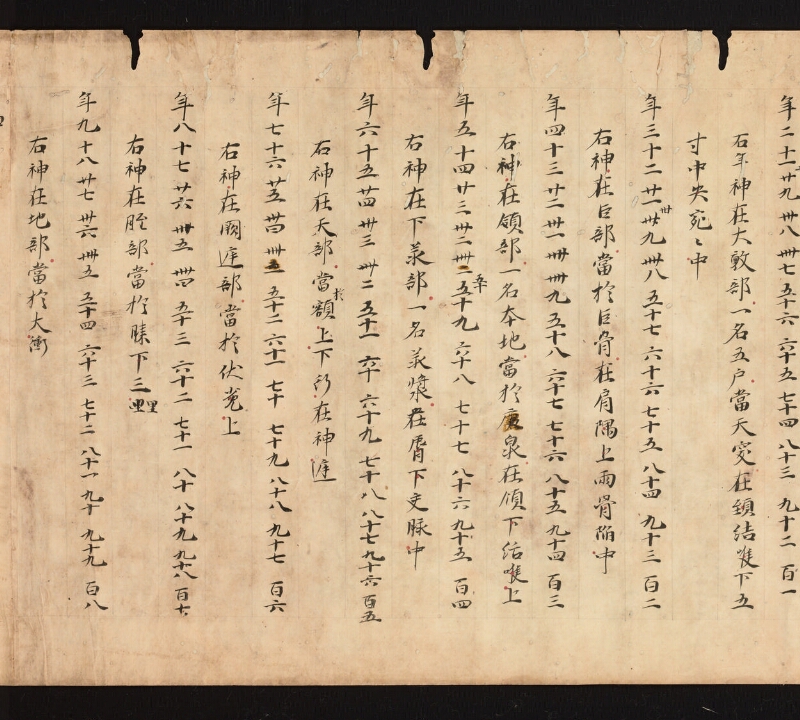 年二十一廿九卅八卌七五十六六十五七十四八十三九十二百一
右年神在大敦部一名五户當天突在頸結喉下五
寸中央宛〻中
年三十二廿一卅卌九卌八五十七六十六七十五八十四九十三百二
右神在巨部當於巨骨在肩隅上兩骨陷中
年四十三卅二廿一卅卌九五十八六十七七十六八十五九十四百三
右神在頷部一名本地當於廉泉在頷下結喉上
年五十四廿三卅二卌一五十五十九六十八七十七八十六九十五百四
右神在下承部一名承漿在脣下
年六十五廿四卅三卌二五十一六十六十九七十八八十七九十六百五
右神在天部當於額上下行在神庭
年七十六廿五卅四卌三五十二六十一七十七十九八十八九十七百六
右神在闕庭部當於伏菟上
年八十七廿六卅五卌四五十三六十二七十一八十八十九九十八百七
右神在脛部當於膝下三里
年九十八廿七卅六卌五五十四六十三七十二八十一九十九十九百八
右神在地部當於大衝